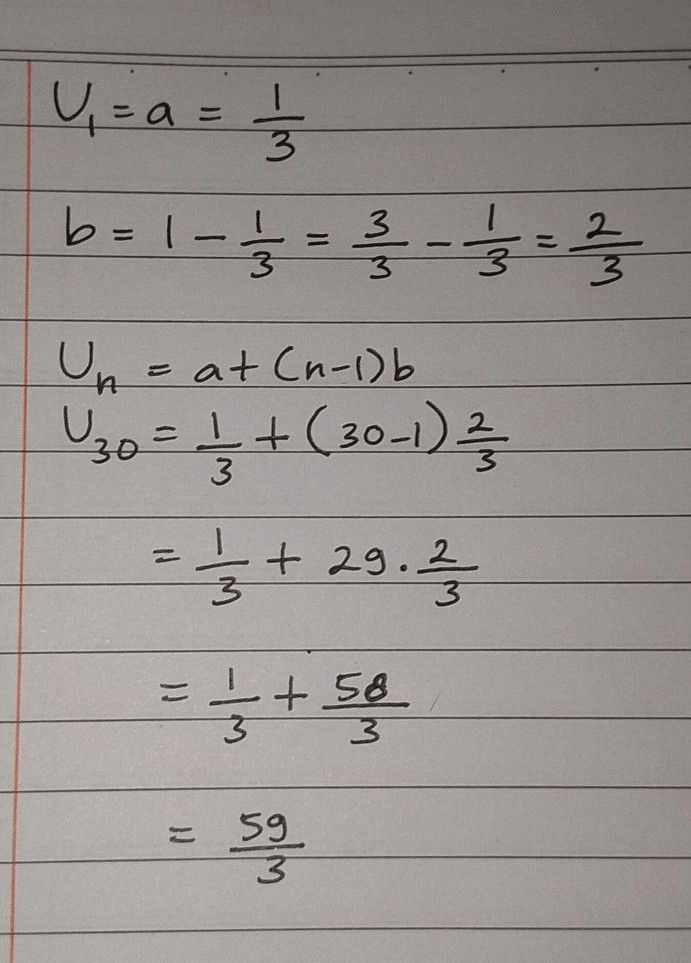 U₁ = a = 1/3
b = 1 - 1/3 = 3/3 - 1/3 = 2/3
Uₙ = a + (n-1)b
U₃₀ = 1/3 + (30-1) 2/3
= 1/3 + 29 . 2/3
= 1/3 + 58/3
= 59/3